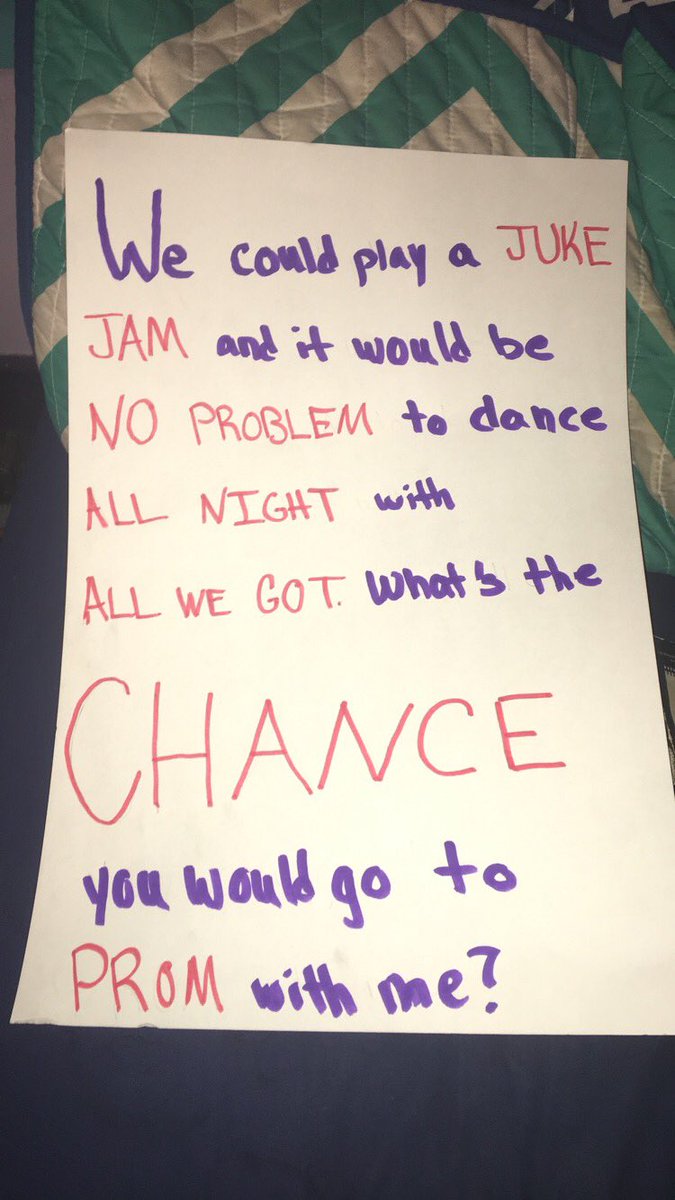 We could play a JUKE
JAM and it would be
NO PROBLEM to dance
ALL NIGHT with
ALL WE GOT. What's the
CHANCE
you would go to
PROM with me?